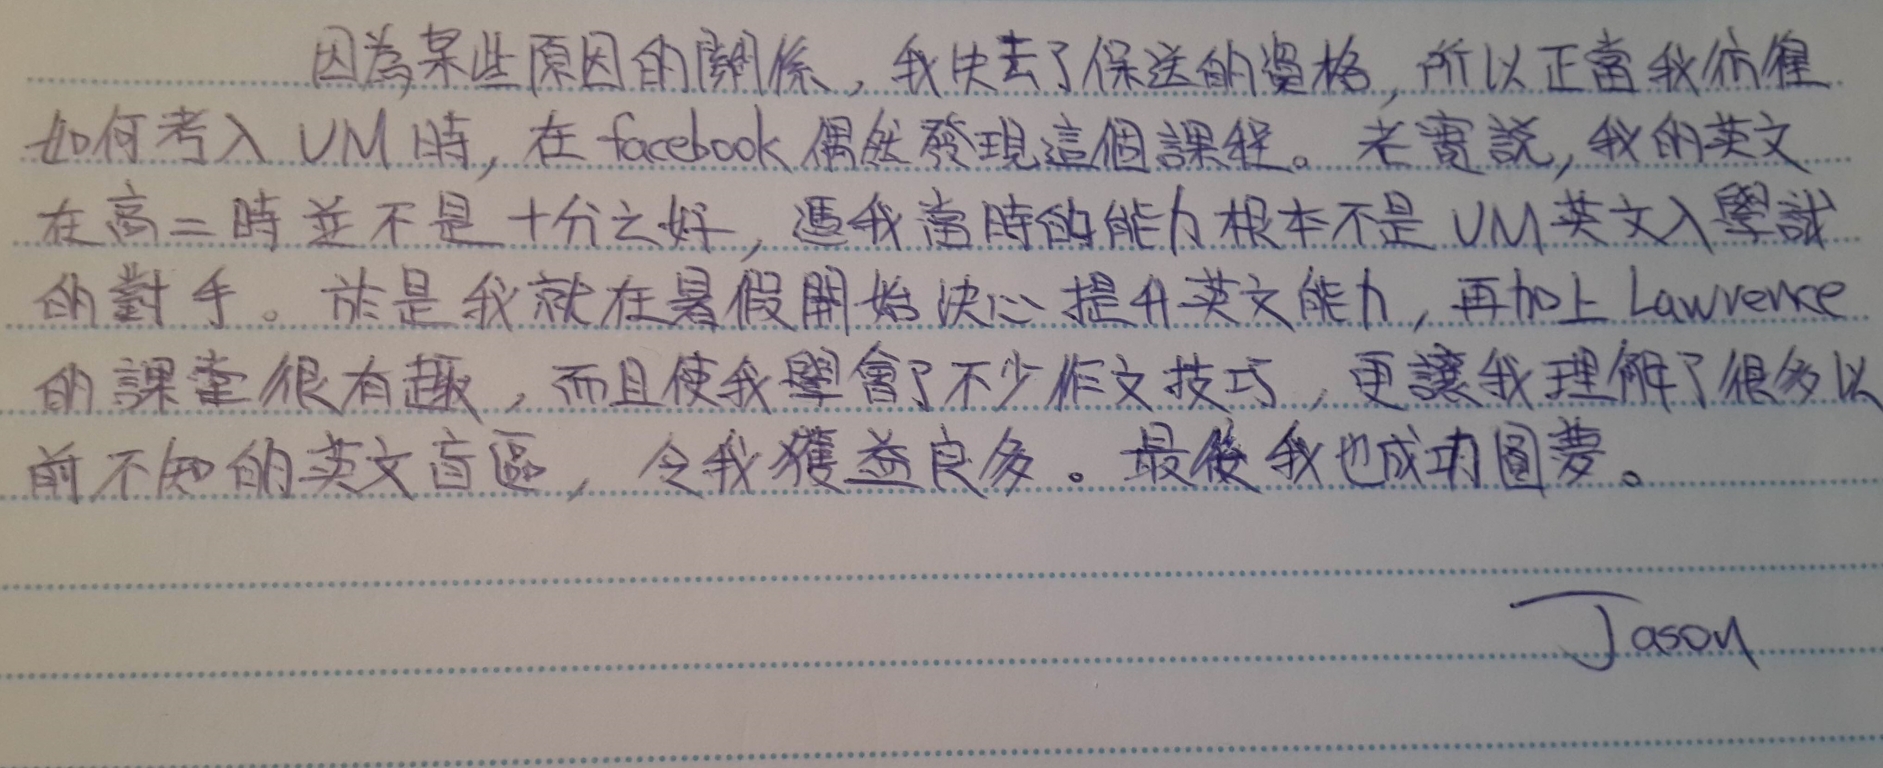 因為某些原因的關係，我失去了保送的資格，所以正當我彷徨
如何考入 UM 時，在 facebook 偶然發現這個課程。老實說，我的英文
在高二時並不是十分之好，憑我當時的能力根本不是 UM 英文入學試
的對手。於是我就在暑假開始決心提升英文能力，再加上 Lawrence
的課堂很有趣，而且使我學會了不少作文技巧，更讓我理解了很多以
前不知的英文盲區，令我獲益良多。最後我也成功圓夢。
Jason